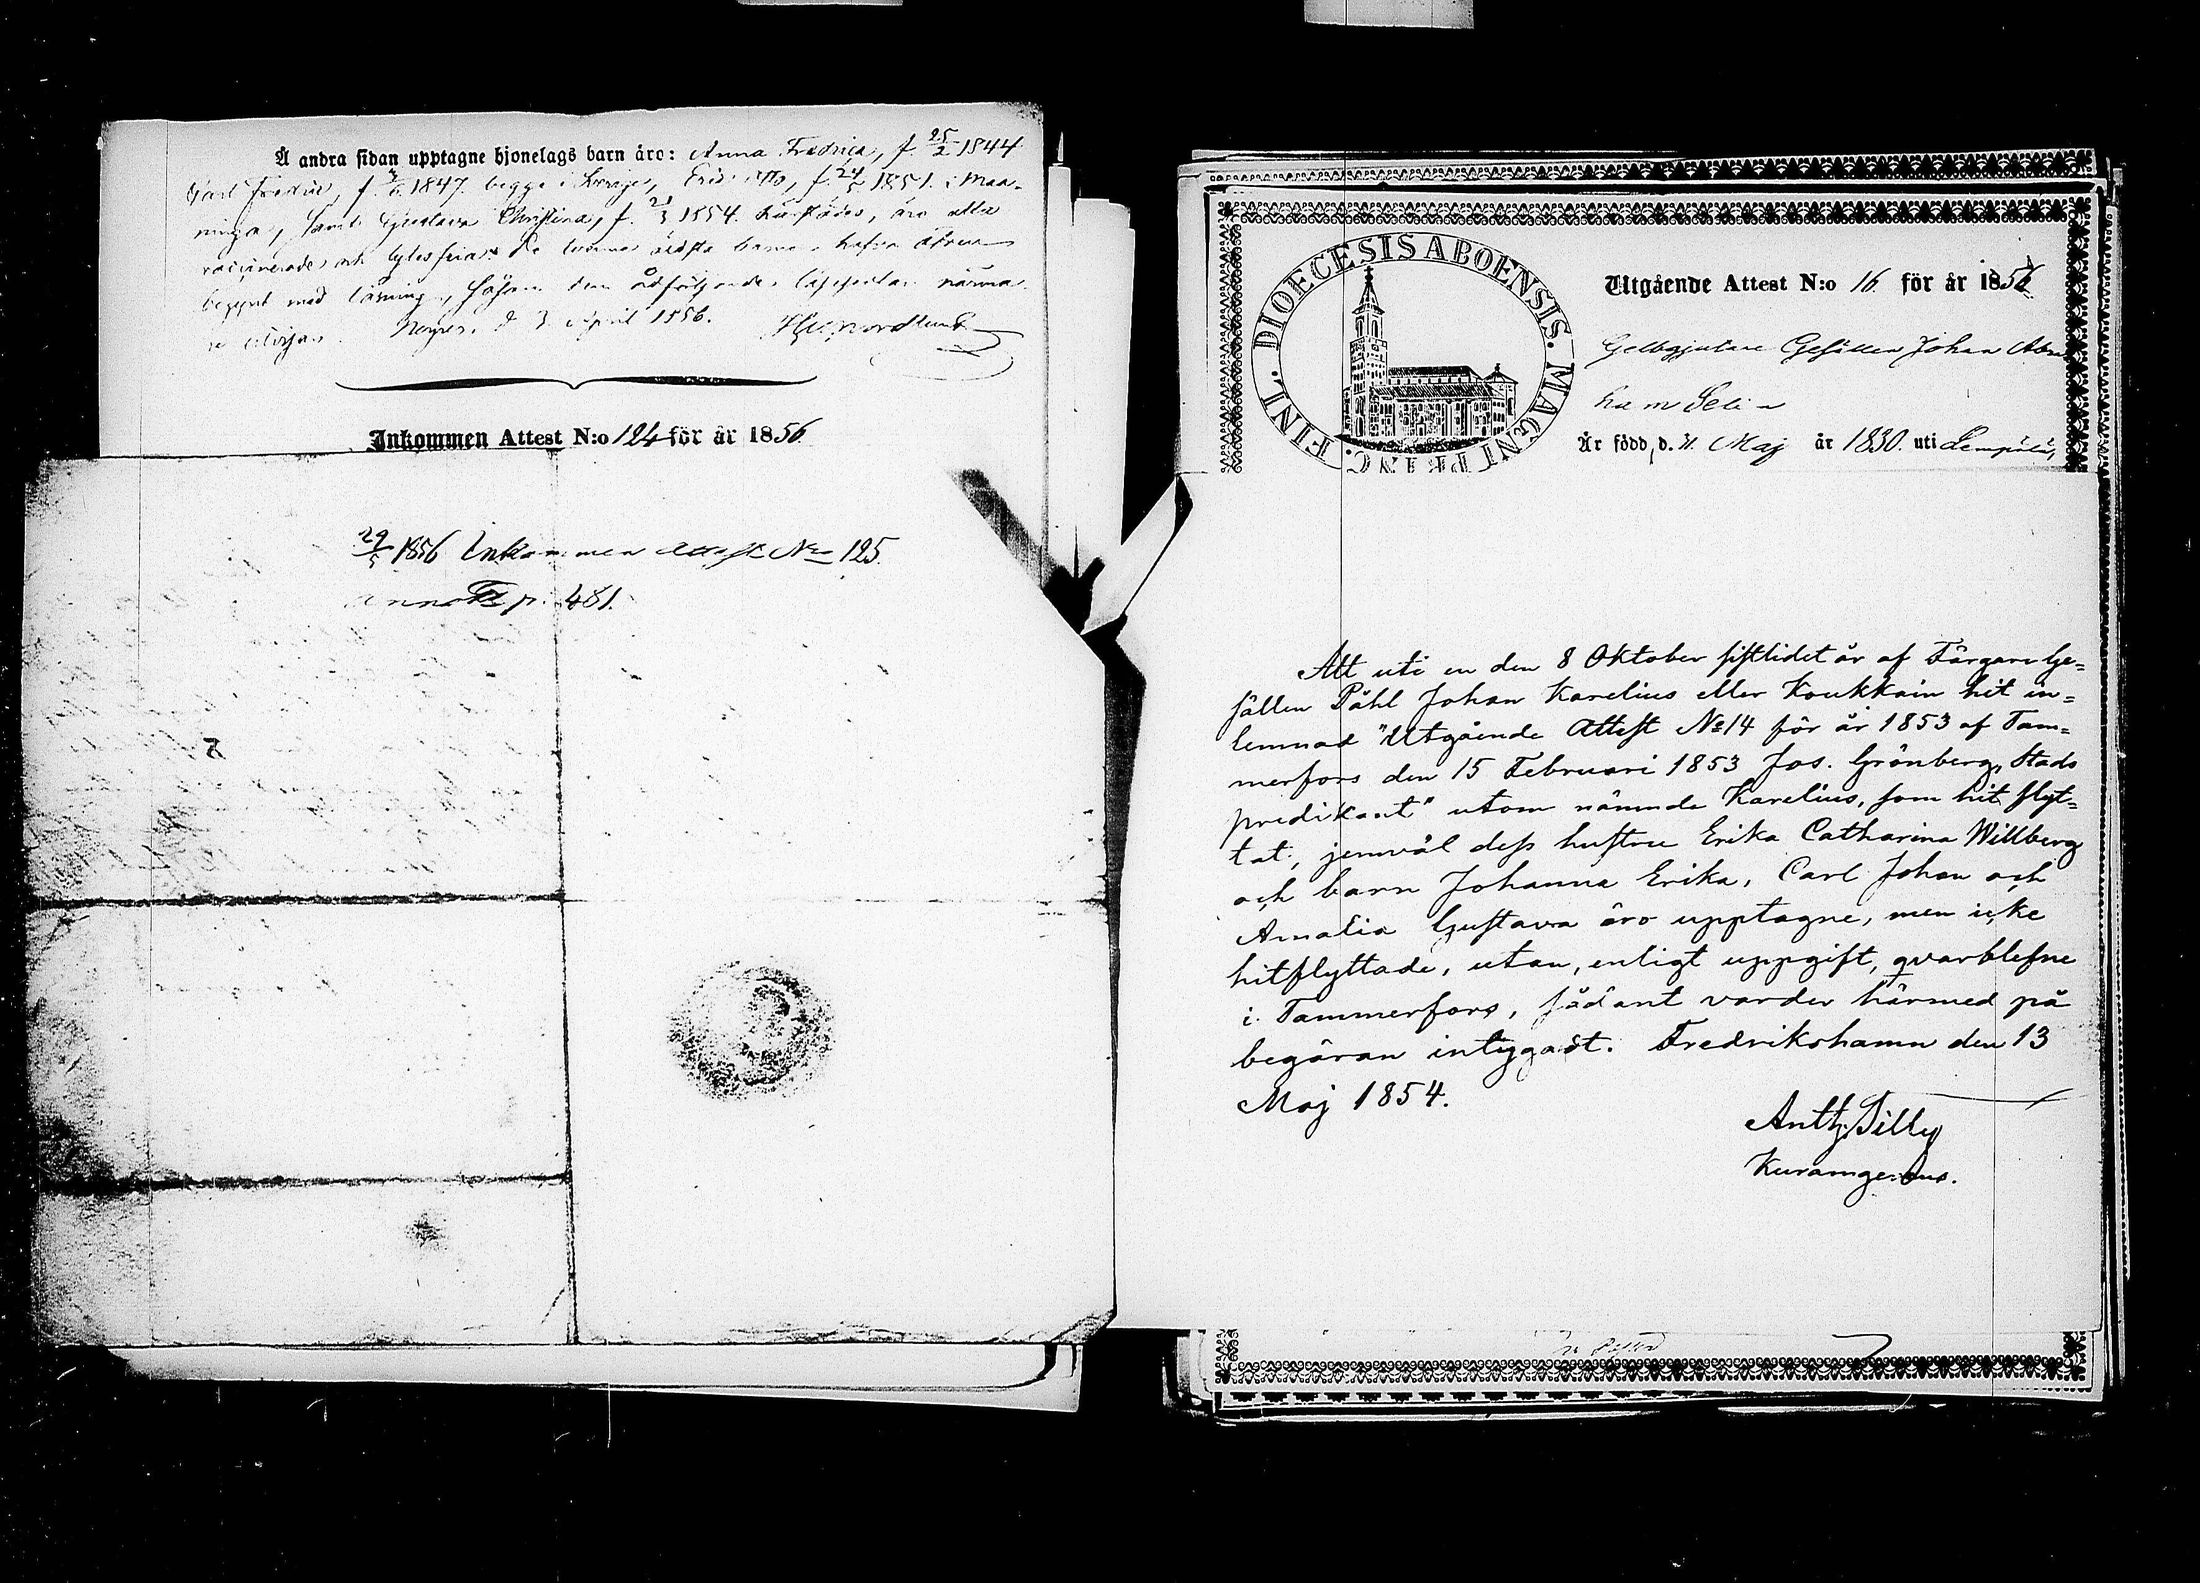 Å andra sidan upptagne hjonelags barn äro: Anna Fredrica, f. 25/2 1844
Carl Fredric, f. 1847. begge i Sverige, Otto, f. 24/5 1851. i Maa-
ninga, samt Gustava Christina, f. 21/3 1854. härstädes, äro alla
vaccinerade och lytesfria. De tvenne äldsta barnen hafva äfven
begynt med läsningen, såsom den åtföljande närma-
re utvisar. d. 3 April 1856. Nordlund
Inkommen Attest N:o 124 för år 1856
29/5 1856 Inkommen Attest No 125.
p. 481.
DIOECESIS ABOENSIS. MAGNI PRINC. FINL.
Utgående Attest N:o 16 för år 1856
Gelbgjutare Gesällen Johan Abra
ham Selin
Är född, d. 21 Maj år 1830. uti Lempälä,
Att uti en den 8 Oktober sistlidet år af Färgare Ge=
sällen Påhl Johan Karelius eller Koukkain hit in=
lemnad "Utgående Attest No 14 för år 1853 af Tam=
merfors den 15 Februari 1853 Jos. Grönberg, Stads
predikant" utom nämnde Karelius, som hit flyt=
tat, jemväl dess hustru Erika Catharina Willberg
och barn Johanna Erika, Carl Johan och
Amalia Gustava äro upptagne, men icke
hitflyttade, utan, enligt uppgift, qvarblefne
i Tammerfors, sådant varder härmed på
begäran intygadt. Fredrikshamn den 13
Maj 1854.
Anth. Tilly
Kuramgerens.